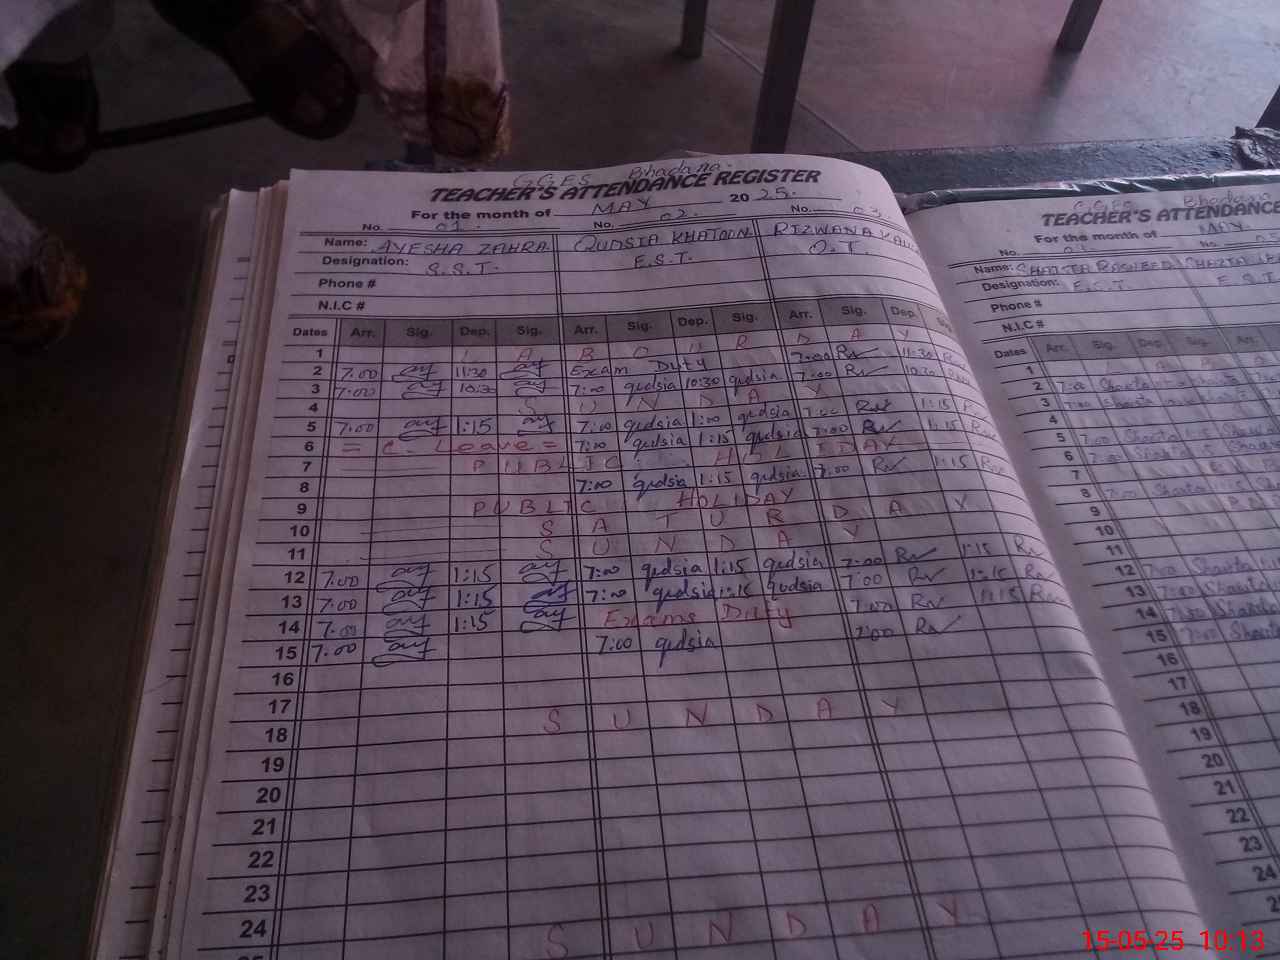 G.G.E.S Bhadana.
TEACHER'S ATTENDANCE REGISTER
For the month of MAY 2025.
No. 01. No. 02. No. 03.
Name: AYESHA ZAHRA QUDSIA KHATOON RIZWANA
Designation: S.S.T. E.S.T. O.T.
Phone #
N.I.C #
Dates Arr. Sig. Dep. Sig. Arr. Sig. Dep. Sig. Arr. Sig. Dep. Sig.
1 L A B O U R D A Y
2 7:00 ay 11:30 ay Exam Duty 7:00 Rv 11:30
3 7:00 ay 10:30 ay 7:00 qudsia 10:30 qudsia 7:00 Rv 10:30
4 S U N D A Y
5 7:00 ay 1:15 ay 7:00 qudsia 1:00 qudsia 7:00 Rv 1:15
6 = C. Leave = 7:00 qudsia 1:15 qudsia 7:00 Rv 1:15
7 PUBLIC HOLIDAY
8 7:00 qudsia 1:15 qudsia 7:00 Rv 1:15
9 PUBLIC HOLIDAY
10 S A T U R D A Y
11 S U N D A Y
12 7:00 ay 1:15 ay 7:00 qudsia 1:15 qudsia 7:00 Rv 1:15 Rv
13 7:00 ay 1:15 ay 7:00 qudsia 1:15 qudsia 7:00 Rv 1:15 Rv
14 7:00 ay 1:15 ay Exams Duty 7:00 Rv 1:15
15 7:00 ay 7:00 qudsia 7:00 Rv
16
17
18 S U N D A Y
19
20
21
22
23
24
S U N D A Y
25
G.G.E.S Bhadana
TEACHER'S ATTENDANCE
For the month of MAY.
No. No.
Name: SHAISTA RASHEED SHAZIA
Designation: E.S.T. E.S.T
Phone #
N.I.C #
Dates Arr. Sig. Dep. Sig. Arr.
1
2 7:00 Shaista
3 7:00 Shaista
4
5 7:00 Shaista
6 7:00 Shaista
7
8 7:00 Shaista
9
10
11
12 7:00 Shaista
13 7:00 Shaista
14 7:00 Shaista
15 7:00 Shaista
16
17
18
19
20
21
22
23
24
15-05-25 10:13